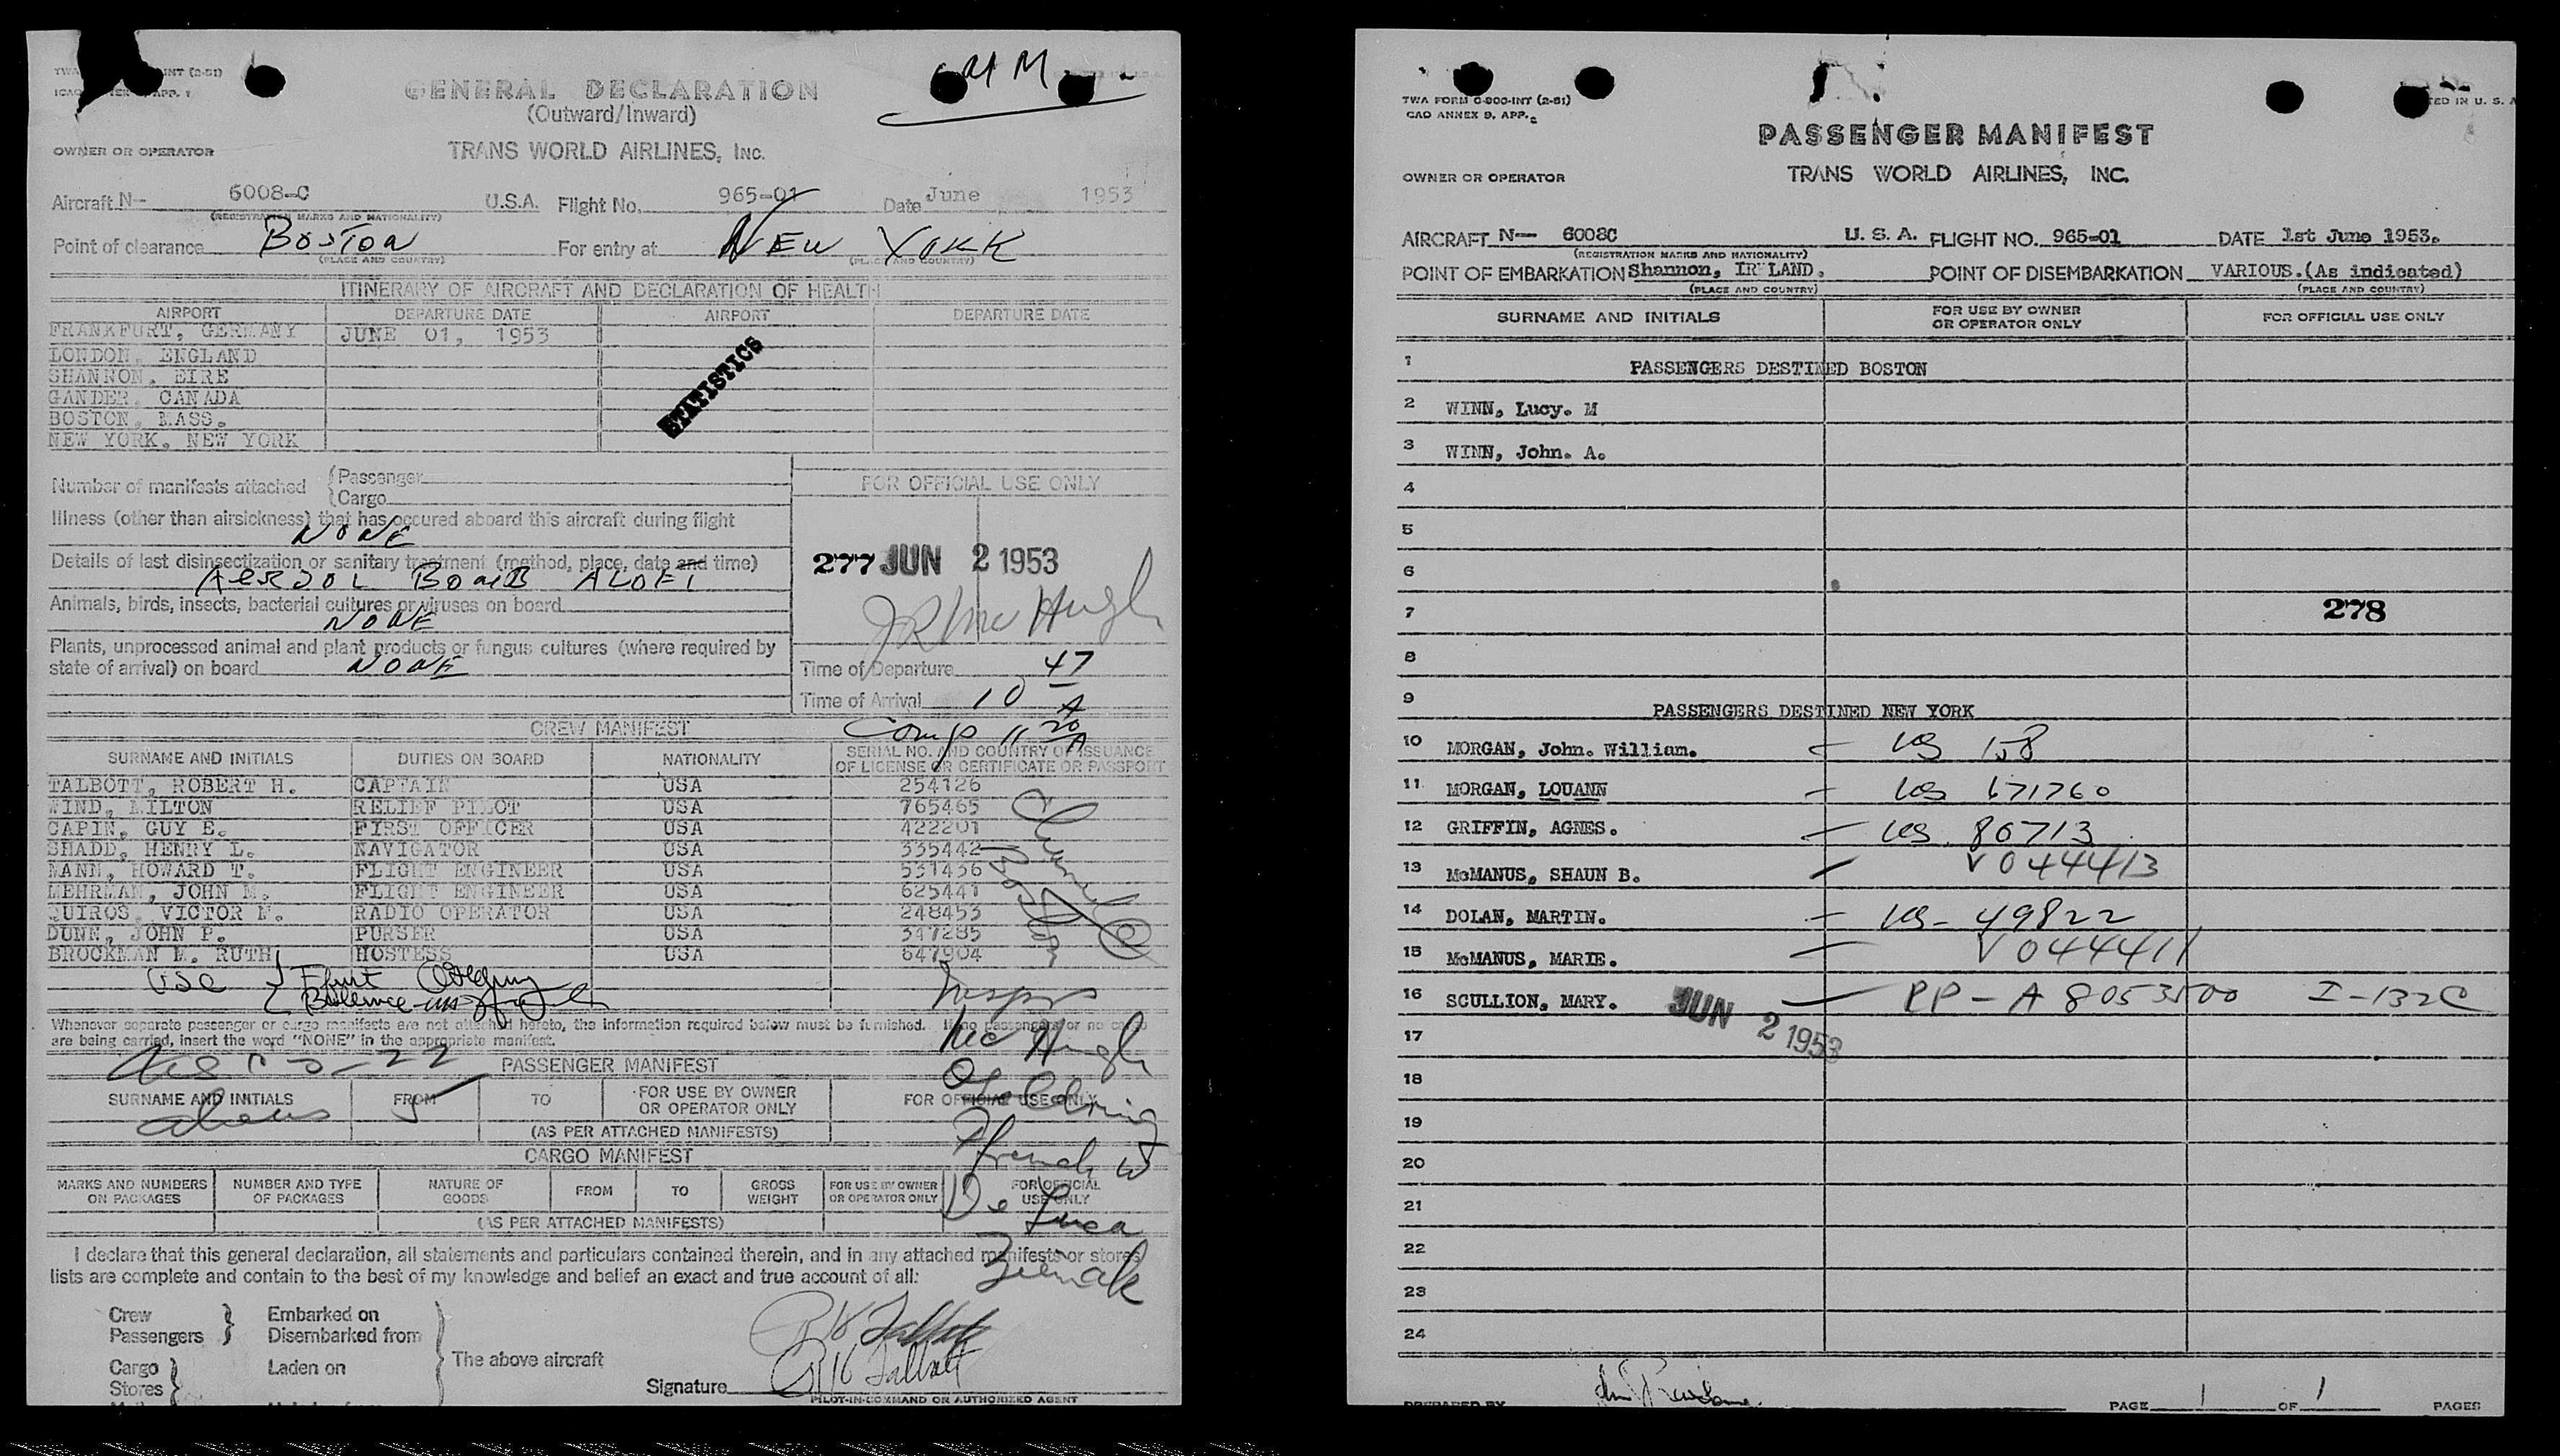 GENERAL DECLARATION
(Outward/Inward)
OWNER OR OPERATOR TRANS WORLD AIRLINES, Inc.
Aircraft N- 6008-C U.S.A. Flight No. 965-01 Date June 1953
(REGISTRATION MARKS AND NATIONALITY)
Point of clearance BOSTON For entry at NEW YORK
(PLACE AND COUNTRY) (PLACE AND COUNTRY)
ITINERARY OF AIRCRAFT AND DECLARATION OF HEALTH
AIRPORT DEPARTURE DATE AIRPORT DEPARTURE DATE
FRANKFURT, GERMANY JUNE 01, 1953
LONDON, ENGLAND
SHANNON, EIRE
GANDER, CANADA
BOSTON, MASS.
NEW YORK, NEW YORK
STATISTICS
Number of manifests attached Passenger
Cargo
Illness (other than airsickness) that has occured aboard this aircraft during flight
NONE
Details of last disinsectization or sanitary treatment (method, place, date and time)
Animals, birds, insects, bacterial cultures or viruses on board
NONE
Plants, unprocessed animal and plant products or fungus cultures (where required by
state of arrival) on board NONE
FOR OFFICIAL USE ONLY
277 JUN 2 1953
Time of Departure
Time of Arrival 10 47 A
Comp 11 20 A
CREW MANIFEST
SURNAME AND INITIALS DUTIES ON BOARD NATIONALITY SERIAL NO. AND COUNTRY OF ISSUANCE
OF LICENSE OR CERTIFICATE OR PASSPORT
TALBOTT, ROBERT H. CAPTAIN USA 254126
WIND, MILTON RELIEF PILOT USA 765465
CAPIN, GUY E. FIRST OFFICER USA 422201
SHADD, HENRY L. NAVIGATOR USA 335442
MANN, HOWARD T. FLIGHT ENGINEER USA 531436
MEHRMAN, JOHN M. FLIGHT ENGINEER USA 625441
QUIROS, VICTOR M. RADIO OPERATOR USA 248453
DUNN, JOHN P. PURSER USA 347285
BROCKMAN M. RUTH HOSTESS USA 647904
Whenever separate passenger or cargo manifests are not attached hereto, the information required below must be furnished. If no passengers or no cargo
are being carried, insert the word "NONE" in the appropriate manifest.
PASSENGER MANIFEST
SURNAME AND INITIALS FROM TO FOR USE BY OWNER
OR OPERATOR ONLY FOR OFFICIAL USE ONLY
(AS PER ATTACHED MANIFESTS)
CARGO MANIFEST
MARKS AND NUMBERS
ON PACKAGES NUMBER AND TYPE
OF PACKAGES NATURE OF
GOODS FROM TO GROSS
WEIGHT FOR USE BY OWNER
OR OPERATOR ONLY FOR OFFICIAL
USE ONLY
(AS PER ATTACHED MANIFESTS)
McHugh
Goldring
French W
De Luca
I declare that this general declaration, all statements and particulars contained therein, and in any attached manifests or stores
lists are complete and contain to the best of my knowledge and belief an exact and true account of all:
Crew
Passengers
Embarked on
Disembarked from
Cargo
Stores
Laden on
The above aircraft
Signature RH Talbott
PILOT-IN-COMMAND OR AUTHORIZED AGENT
TWA FORM C-900-INT (2-51)
CAO ANNEX 9, APP.
PASSENGER MANIFEST
OWNER OR OPERATOR TRANS WORLD AIRLINES, INC.
AIRCRAFT N- 6008C U. S. A. FLIGHT NO. 965-01 DATE 1st June 1953.
(REGISTRATION MARKS AND NATIONALITY)
POINT OF EMBARKATION Shannon, IR LAND. POINT OF DISEMBARKATION VARIOUS.(As indicated)
(PLACE AND COUNTRY) (PLACE AND COUNTRY)
SURNAME AND INITIALS FOR USE BY OWNER
OR OPERATOR ONLY FOR OFFICIAL USE ONLY
1 PASSENGERS DESTINED BOSTON
2 WINN, Lucy. M
3 WINN, John. A.
4
5
6
7 278
8
9 PASSENGERS DESTINED NEW YORK
10 MORGAN, John. William. US 158
11 MORGAN, LOUANN US 671760
12 GRIFFIN, AGNES. US 86713
13 McMANUS, SHAUN B. V044413
14 DOLAN, MARTIN. US- 49822
15 McMANUS, MARIE. V044411
16 SCULLION, MARY. PP - A 8053500 I-132C
JUN 2 1953
17
18
19
20
21
22
23
24
PREPARED BY PAGE 1 OF 1 PAGES